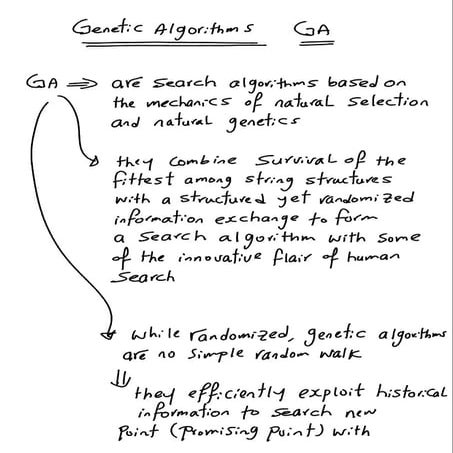 Genetic Algorithms GA
GA ⇒ are search algorithms based on
the mechanics of natural selection
and natural genetics
they combine survival of the
fittest among string structures
with a structured yet randomized
information exchange to form
a search algorithm with some
of the innovative flair of human
search
while randomized, genetic algorithms
are no simple random walk
⇓ they efficiently exploit historical
information to search new
Point (Promising Point) with